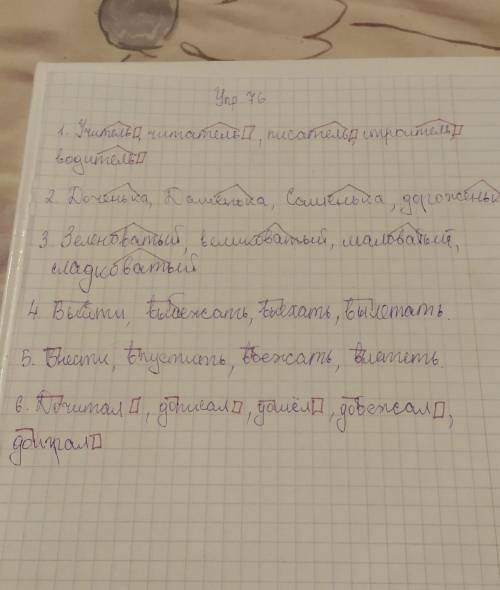 Упр 76
1. Учитель, читатель, писатель, строитель
водитель
2. Доченька, Поленька, Сашенька, дороженьк
3. Зеленоватый, великоватый, маловатый,
сладковатый
4. Выйти, выбежать, выехать, вылетать.
5. Внести, впустить, вбежать, влететь.
6. Дочитал, дописал, дошёл, добежал,
доиграл